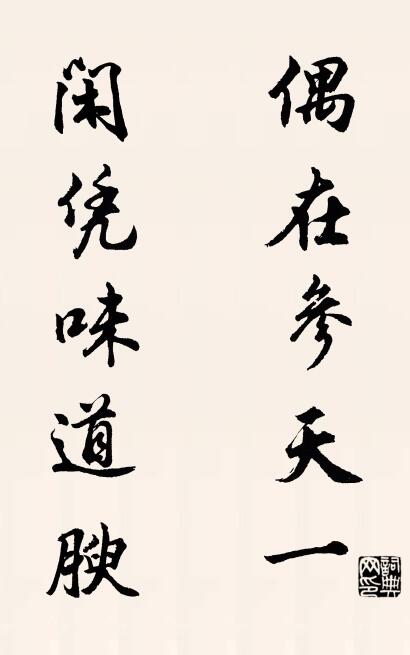 偶在参天一
闲凭味道腴
詞典网印